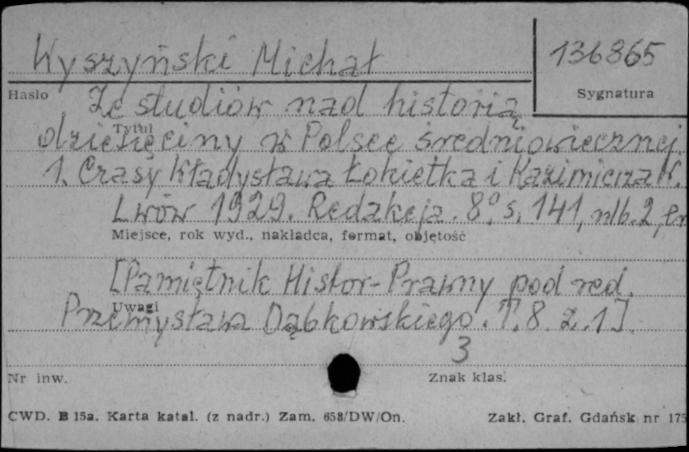 Wyszyński Michał
136865
Hasło
Sygnatura
Ze studiów nad historią
Tytuł
dziesięciny w Polsce średniowiecznej.
1. Czasy Władysława Łokietka i Kazimierza W.
Lwów 1929. Redakcja. 8° s. 141, nlb. 2,
Miejsce, rok wyd., nakładca, format, objętość
[Pamiętnik Histor-Prawny pod red.
Uwagi
Przemysława Dąbkowskiego. T. 8. z. 1].
3
Nr inw.
Znak klas.
CWD. B 15a. Karta katal. (z nadr.) Zam. 658/DW/On.
Zakł. Graf. Gdańsk nr 175